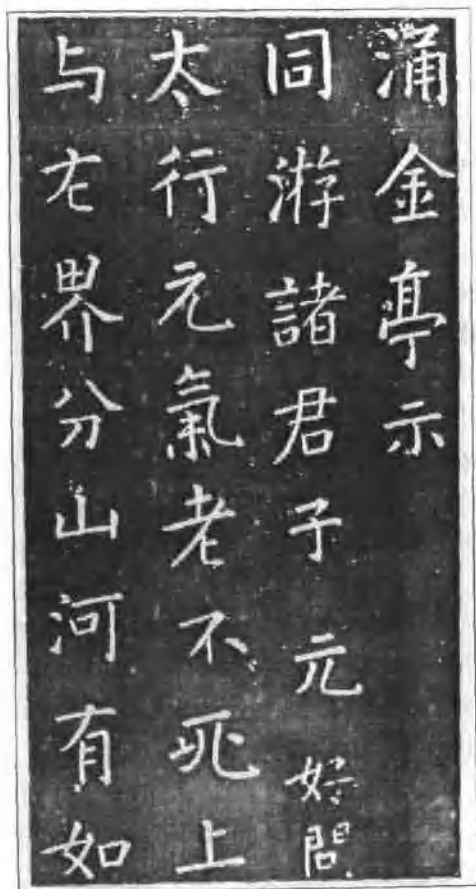 涌金亭示
同游諸君子 元好問
太行元氣老不死上
与左界分山河有如